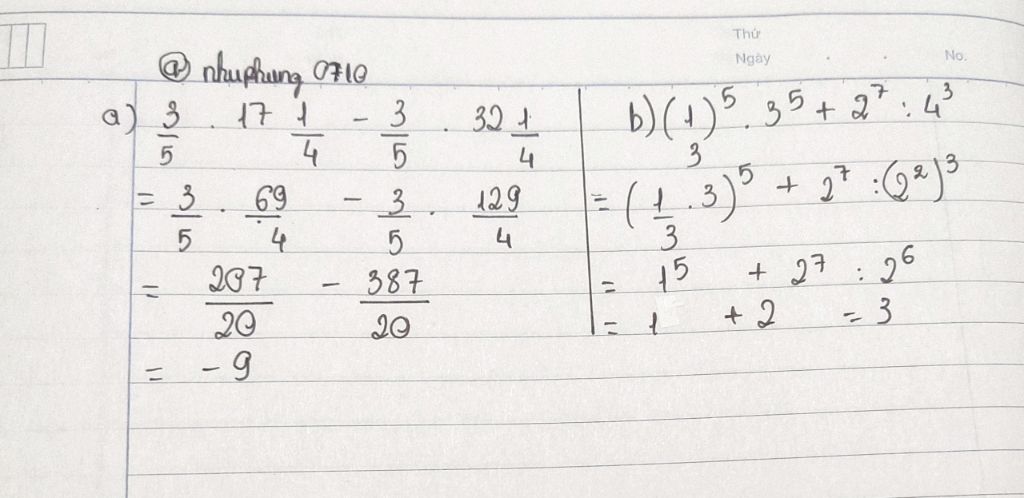 Thứ
Ngày . . No.
@ nhuphung 0710
a) 3/5 . 17 1/4 - 3/5 . 32 1/4
= 3/5 . 69/4 - 3/5 . 129/4
= 207/20 - 387/20
= -9
b) (1/3)⁵ . 3⁵ + 2⁷ : 4³
= (1/3 . 3)⁵ + 2⁷ : (2²)³
= 1⁵ + 2⁷ : 2⁶
= 1 + 2 = 3